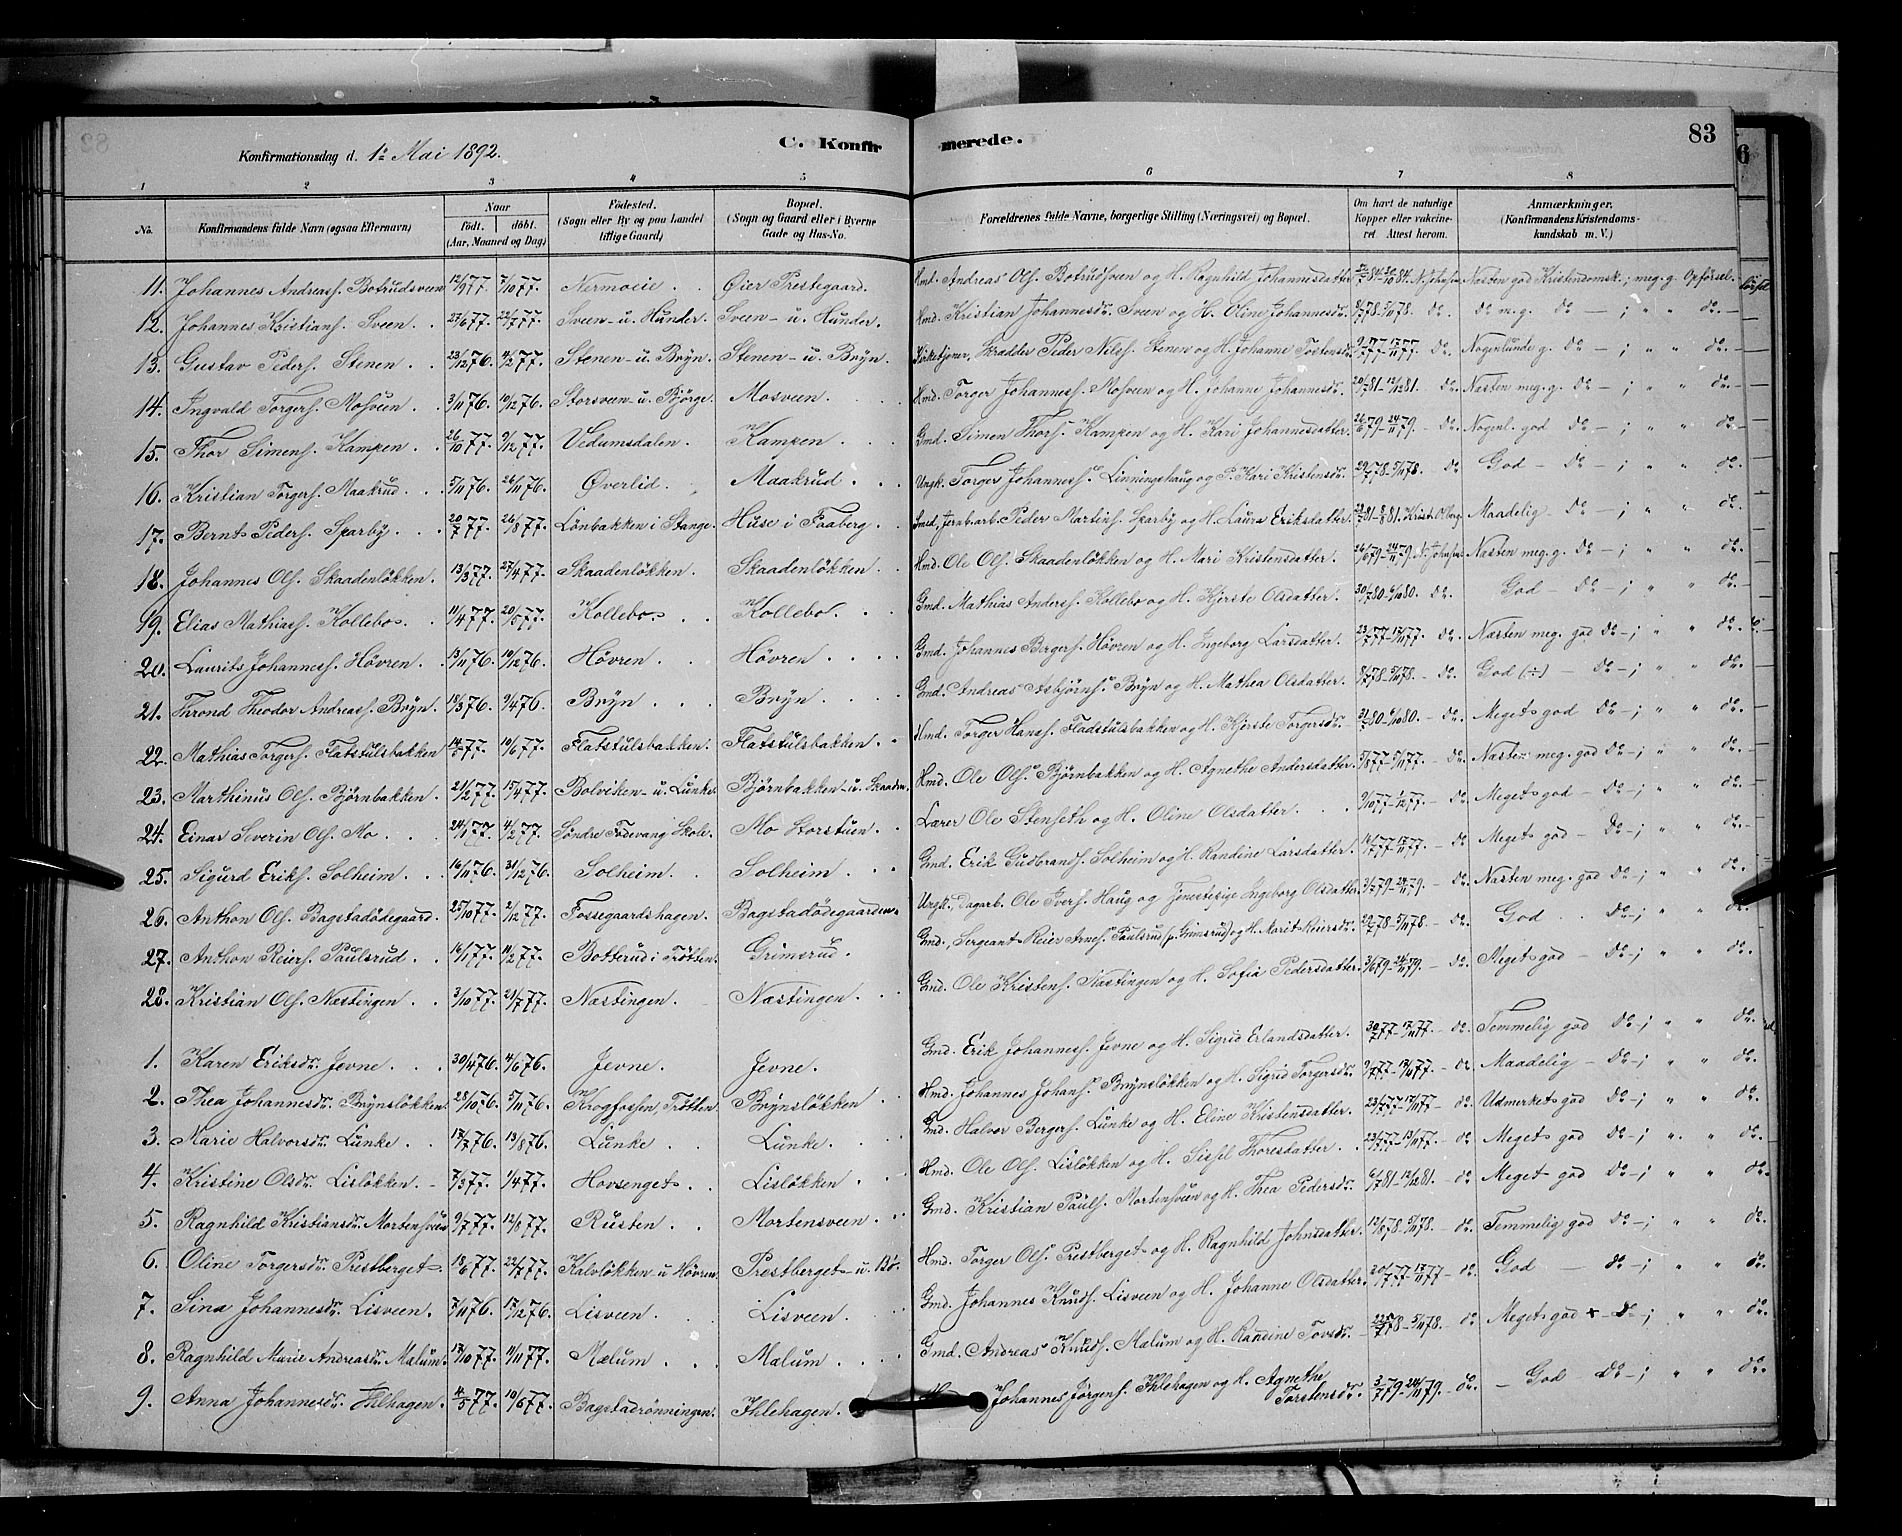 83
C. Konfirmerede.
Konfirmationsdag d. 1ᵗᵉ Mai 1892.
1 2 3 4 5 6 7 8
No. Konfirmandens fulde Navn (ogsaa Efternavn) Naar født. døbt. (Aar, Maaned og Dag) Fødested. (Sogn eller By og paa Landet tillige Gaard) Bopæl. (Sogn og Gaard eller i Byerne Gade og Hus-No. Forældrenes fulde Navne, borgerlige Stilling (Næringsvei) og Bopæl. Om havt de naturlige Kopper eller vakcineret. Attest herom. Anmærkninger. (Konfirmandens Kristendomskundskab m. V.)
11. Johannes Andreass. Botrudsveen 12/9 77. 7/10 77. Nermoeie. Øier Prestegaard. Hmd. Andreas Ols. Botrudsveen og H. Ragnhild Johannesdatter Næsten god Kristendomsk.; meg. g. Opførsel.
12. Johannes Kristians. Sveen. 27/6 77. 22/7 77. Sveen u. Hunder. Sveen u. Hunder. Hmd. Kristian Johannesdr. Sveen og H. Oline Johannesdr. 8/7 78 - 5/11 78. do. do m. g. do - ; " " do. -
13. Gustav Peders. Stenen 23/12 76. 4/2 77. Stenen u. Bryn. Stenen u. Bryn. Kirketjener, Skrædder Peder Nilss. Stenen og H. Johanne Torstensdr. do. Nogenlunde g. do - ; " " do. -
14. Ingvald Torgers. Mosveen 3/11 76. 10/12 76. Storsveen u. Bjørge. Mosveen. Hmd. Torger Johanness. Mosveen og H. Johanne Johannesdr. 20/7 81 - 12/12 81. do. Næsten meg. g. do - ; " " do. -
15. Thor Simens. Kampen 26/10 77. 9/12 77. Vedumsdalen. Kampen. Gmd. Simen Thors. Kampen og H. Kari Johannesdatter. 26/6 79 - 24/11 79. do. Nogenl. god do - ; " " do. -
16. Kristian Torgers. Maakrud. 5/11 76. 26/11 76. Øverlid. Maakrud. Ungk. Torger Johanness. Linningshaug og P. Kari Kristensdr. 29/7 78 - 5/11 78. do. God - do - ; " " do.
17. Bernt Peders. Sparby. 20/7 77. 26/8 77. Lønbakken i Stange. Huse i Faaberg. Smed, Jernb.arb. Peder Martins. Sparby og H. Laura Eriksdatter. Maadelig do - ; " " do.
18. Johannes Ols. Skaadenløkken. 13/3 77. 27/4 77. Skaadenløkken. Skaadenløkken. Hmd. Ole Ols. Skaadenløkken og H. Mari Kristensdatter. 26/6 79 - 24/11 79. Næsten meg. g. do - ; " " do.
19. Elias Mathiass. Kollebo. 11/4 77. 20/5 77. Kollebo. Kollebo. Gmd. Mathias Anders. Kollebo og H. Kjerste Olsdatter. 30/7 80 - 6/10 80. do. God - do - ; " " do.
20. Laurits Johanness. Høvren. 13/11 76. 10/12 76. Høvren. Høvren. Gmd. Johannes Bergers. Høvren og H. Ingeborg Larsdatter. 23/7 77 - 17/11 77. do. Næsten meg. god do - ; " " do.
21. Thrond Theodor Andreass. Bryn. 18/3 76. 9/4 76. Bryn. Bryn. Gmd. Andreas Asbjørns. Bryn og H. Mathea Olsdatter. 8/7 78 - 5/11 78. - do. God (÷) - do - ; " " do.
22. Mathias Torgers. Flatstulsbakken 14/5 77. 10/6 77. Flatstulsbakken. Flatstulsbakken. Hmd. Torger Hanss. Fladstulsbakken og H. Kjerste Torgersdr. 31/7 80 - 6/10 80. - do. Meget god do - ; " " do.
23. Marthinus Ols. Bjørnbakken. 21/2 77. 15/4 77. Bolviken u. Lunke. Bjørnbakken u. Skaaden. Hmd. Ole Ols. Bjørnbakken og H. Agnethe Andersdatter. 5/8 77 - 5/11 77. - do. Næsten meg. god do - ; " " do.
24. Einar Severin Ols. Mo. 24/1 77. 4/2 77. Søndre Fodevang Skole. Mo Storstuen. Lærer Ole Stenseth og H. Oline Olsdatter. 9/10 77 - 1/12 77. - do. Meget god - do - ; " " do.
25. Sigurd Eriks. Solheim. 16/11 76. 31/12 76. Solheim. Solheim. Gmd. Erik Gudbrands. Solheim og H. Randine Larsdatter. 14/7 77 - 17/11 77. - do. Meget god - do - ; " " do.
26. Anthon Ols. Bagstadødegaard. 25/10 77. 2/12 77. Fossegaardshagen. Bagstadødegaarden. Ungk., Dagarb. Ole Ivers. Haug og Tjenestepige Ingeborg Olsdatter 3/7 79 - 24/11 79. - do. Næsten meg. god do - ; " " do.
27. Anthon Reiers. Paulsrud. 16/1 77. 11/2 77. Botterud i Trøtten. Grimsrud. Gmd., Sergeant Reier Arnes. Paulsrud (p. Grimsrud) og H. Marit Reiersdr. 29/7 78 - 5/11 78. - do. God do - ; " " do.
28. Kristian Ols. Næstingen. 3/10 77. 21/7 77. Næstingen. Næstingen. Gmd. Ole Kristens. Næstingen og H. Sofia Pedersdatter. 3/6 79 - 24/11 79. - do. Meget god - do - ; " " do.
1. Karen Eriksdr. Jevne. 30/4 76. 4/6 76. Jevne. Jevne. Gmd. Erik Johanness. Jevne og H. Sigrid Erlandsdatter. 30/7 77 - 17/11 77. - do. Temmelig god do - ; " " do.
2. Thea Johannesdr. Brynsløkken. 28/10 76. 5/11 76. Krogfossen Trøtten. Brynsløkken. Hmd. Johannes Johans. Brynsløkken og H. Sigrid Torgersdr. 9/7 77 - 17/11 77. - do. Maadelig - do - ; " " do.
3. Marie Halvorsdr. Lunke. 17/7 76. 13/8 76. Lunke. Lunke. Gmd. Halvor Bergers. Lunke og H. Eline Kristensdatter. 23/7 77 - 17/11 77. - do. Udmerket god do - ; " " do.
4. Kristine Olsdr. Lisløkken. 7/3 77. 1/4 77. Hovsenget. Lisløkken. Hmd. Ole Ols. Lisløkken og H. Sissel Thoresdatter. 23/7 77 - 13/11 77. - do. Meget god do - ; " " do.
5. Ragnhild Kristiansdr. Mortensveen 9/7 77. 12/8 77. Rusten. Mortensveen. Gmd. Kristian Pauls. Mortensveen og H. Thea Pedersdr. 6/7 81 - 12/12 81. - do. Meget god do - ; " " do.
6. Oline Torgersdr. Prestberget. 18/6 77. 22/7 77. Kalvløkken u. Høvren. Prestberget u. Bø. Hmd. Torger Ols. Prestberget og H. Ragnhild Johnsdatter. 12/8 78 - 5/11 78. - do. Temmelig god do - ; " " do.
7. Sina Johannesdr. Lisveen. 7/11 76. 17/12 76. Lisveen. Lisveen. Gmd. Johannes Knuds. Lisveen og H. Johanne Olsdatter. 20/7 77 - 17/11 77 - do. God - do - ; " " do.
8. Ragnhild Marie Andreasdr. Mælum. 17/10 77. 11/11 77. Mælum. Mælum. Gmd. Andreas Knuds. Mælum og H. Randine Tovsdr. 22/7 78 - 5/11 78. do. Meget god + do - ; " " do.
9. Anna Johannesdr. Ihlehagen. 4/5 77. 10/6 77. Bagstadrønningen. Ihlehagen. Johannes Jørgens. Ihlehagen og H. Agnethe Torstensdr. 3/7 79 - 24/11 79. - do. - God do - ; " " do.